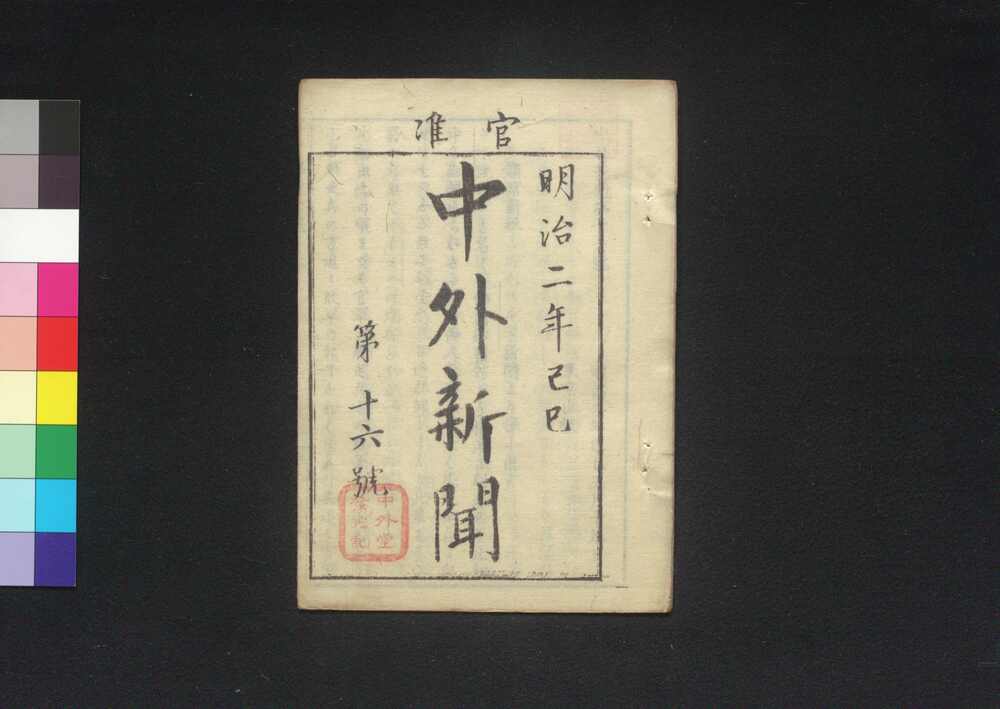 官准
明治二年己巳
中外新聞
第十六號
中外堂